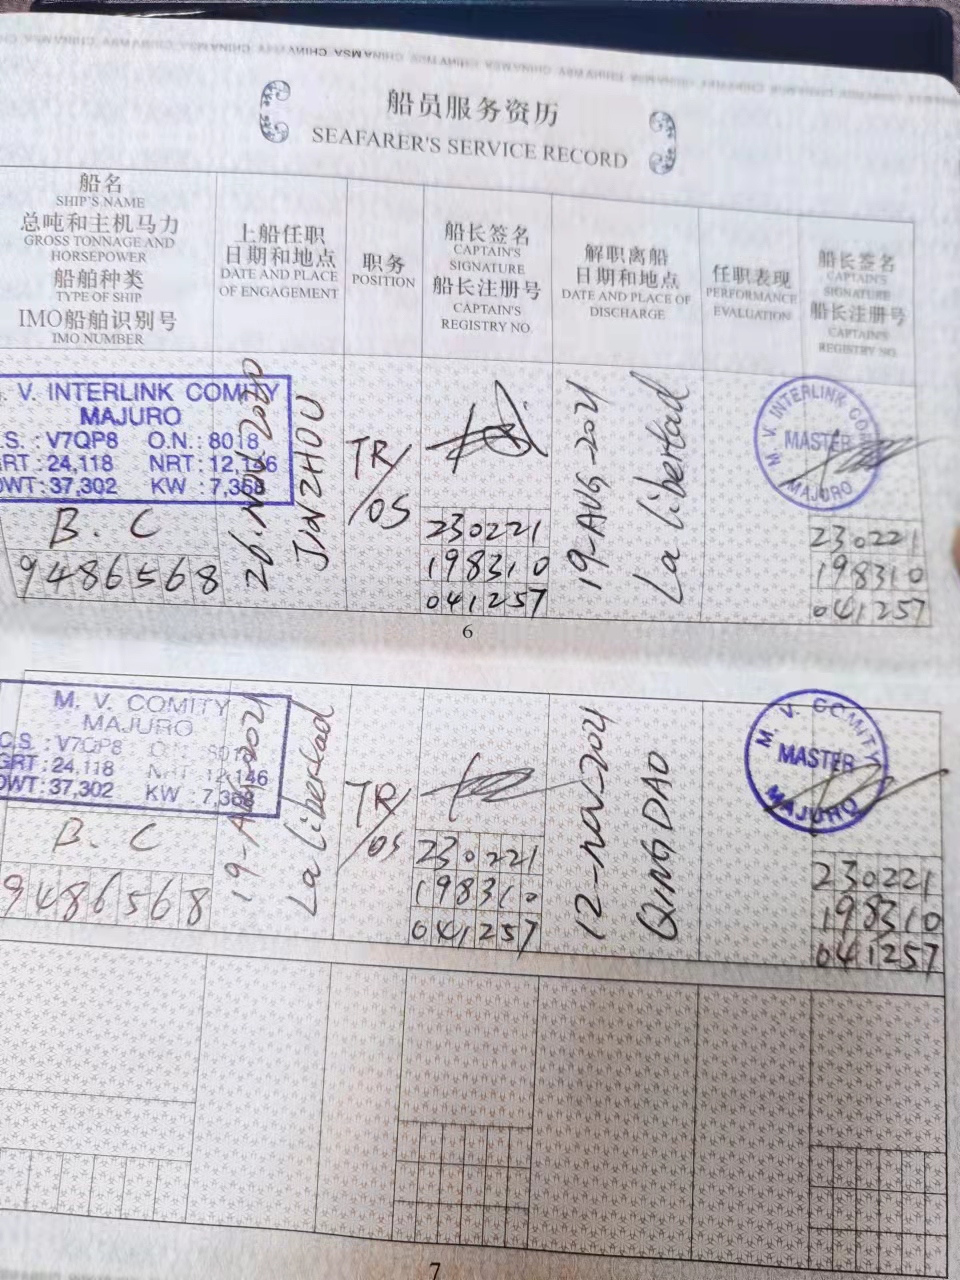 CHINAMSA CHINAMSA CHINAMSA CHINAMSA CHINAMSA
船员服务资历
SEAFARER'S SERVICE RECORD
船名
SHIP'S NAME
总吨和主机马力
GROSS TONNAGE AND
HORSEPOWER
船舶种类
TYPE OF SHIP
IMO船舶识别号
IMO NUMBER
上船任职
日期和地点
DATE AND PLACE
OF ENGAGEMENT
职务
POSITION
船长签名
CAPTAIN'S
SIGNATURE
船长注册号
CAPTAIN'S
REGISTRY NO.
解职离船
日期和地点
DATE AND PLACE OF
DISCHARGE
任职表现
PERFORMANCE
EVALUATION
船长签名
CAPTAIN'S
SIGNATURE
船长注册号
CAPTAIN'S
REGISTRY NO.
. V. INTERLINK COMITY
MAJURO
.S. : V7QP8 O.N.: 8018
RT : 24,118 NRT : 12,146
DWT : 37,302 KW : 7,368
B. C
9486568
26. NOV. 2020
JINZHOU
TR/
/OS
230221
198310
041257
19-AUG-2021
La libertad
M. V. INTERLINK COMITY
MASTER
MAJURO
230221
198310
041257
6
M. V. COMITY
MAJURO
C.S. : V7QP8 O.N. : 8018
GRT : 24,118 NRT : 12,146
DWT : 37,302 KW : 7,368
B. C
9486568
19-AUG-2021
La libertad
TR/
/OS
230221
198310
041257
12-NOV-2021
QINGDAO
M. V. COMITY
MASTER
MAJURO
230221
198310
041257
7